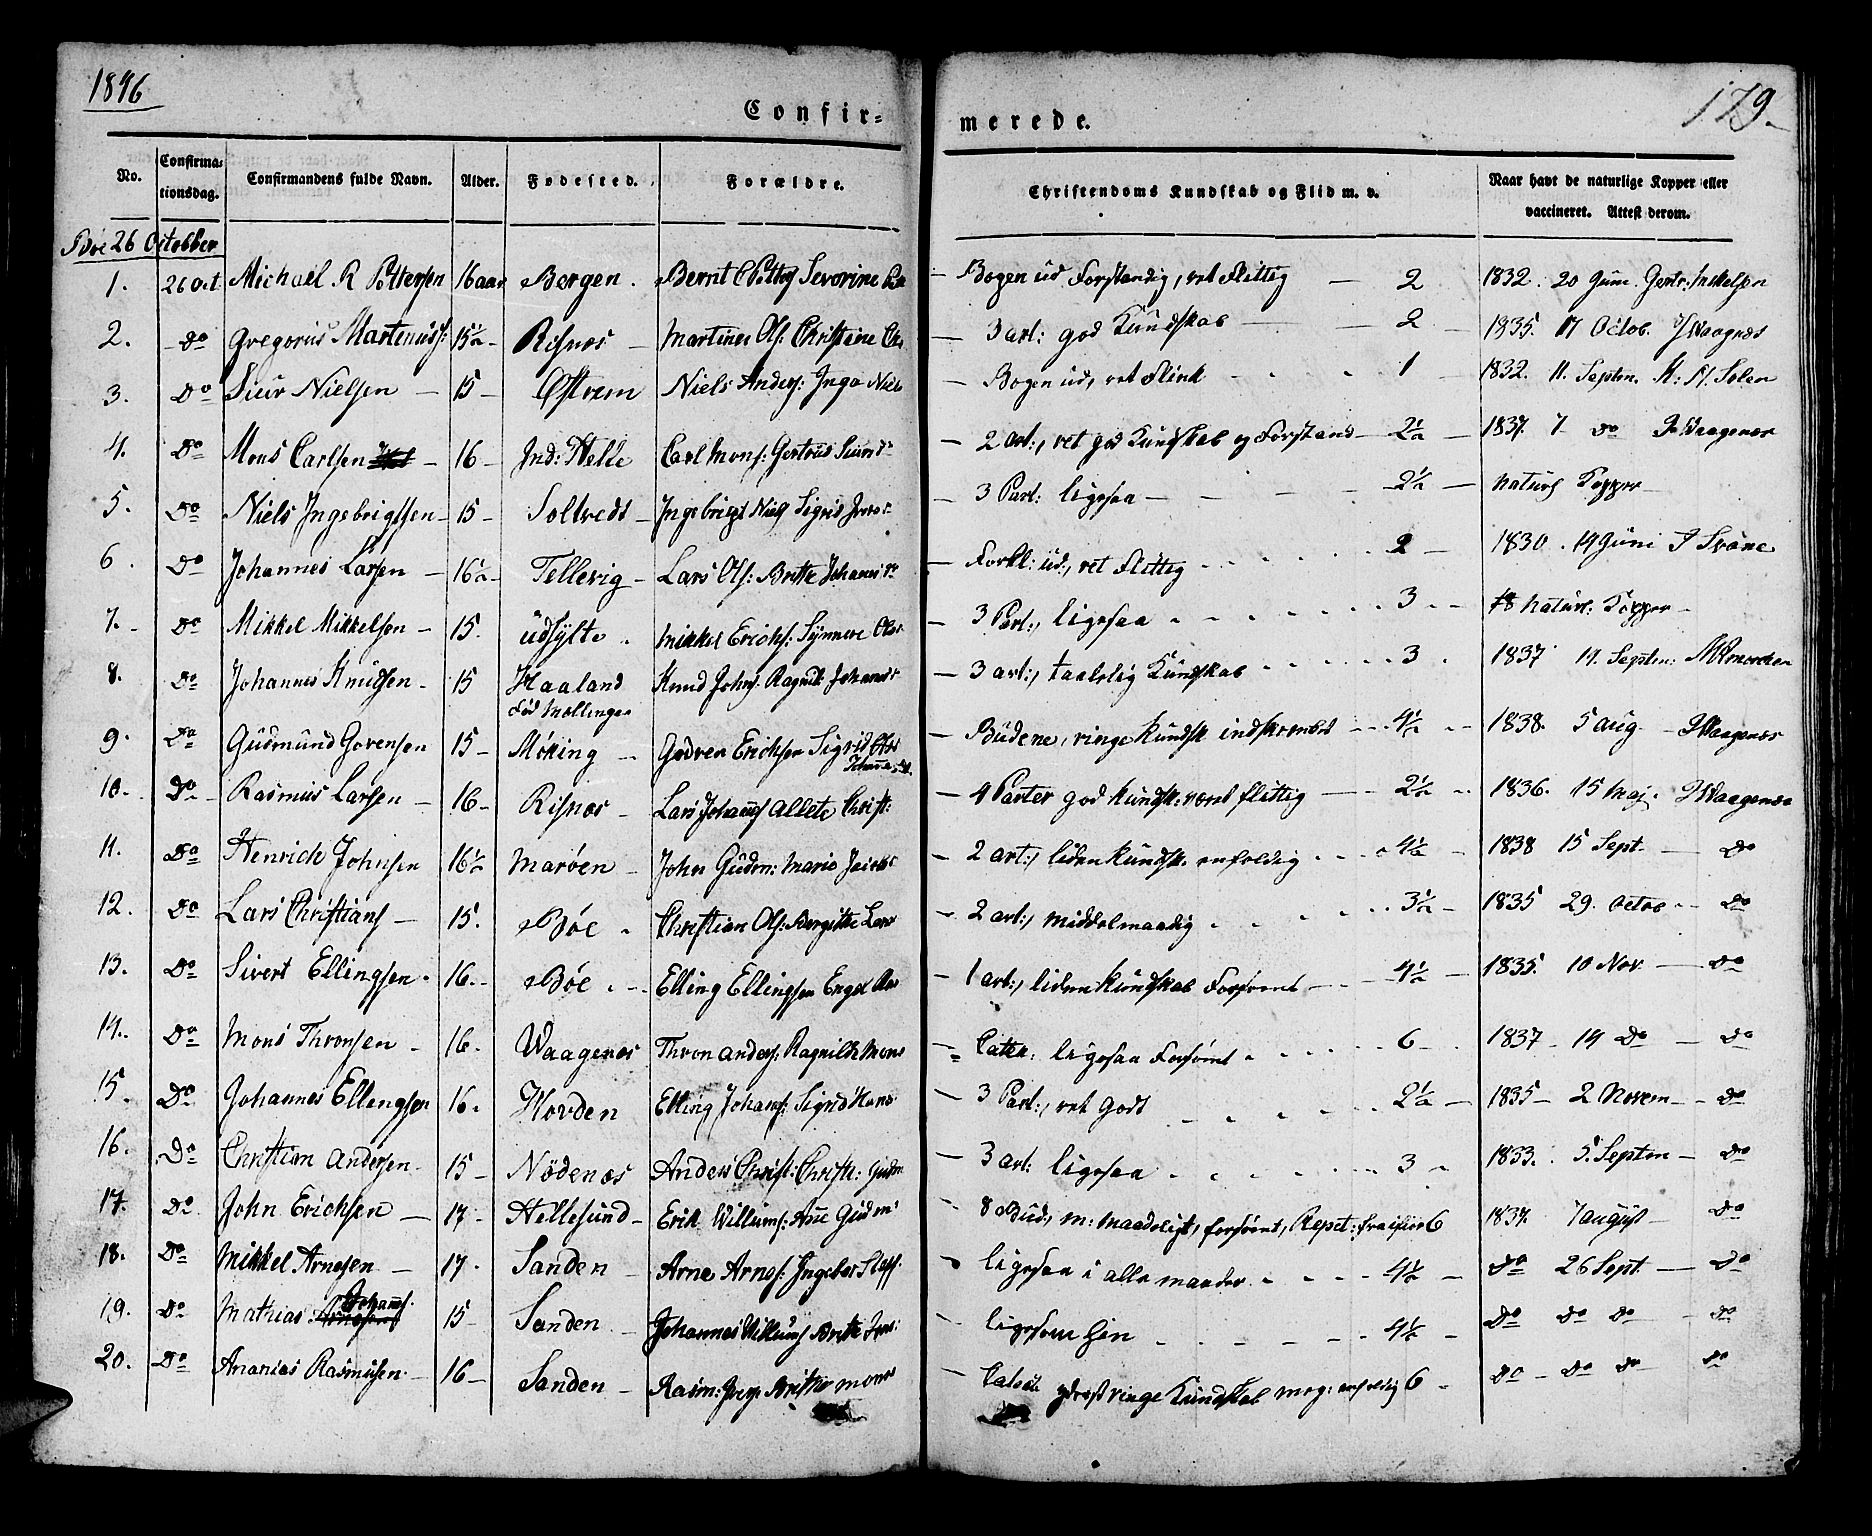 1846
Confir=
merede.
179.
No.
Confirma-
tionsdag.
Confirmandens fulde Navn.
Alder.
Fødested.
Forældre.
Christendoms Kundskab og Flid m. v.
Naar havt de naturlige Kopper eller
vaccineret. Attest derom.
Böe 26 Octobber
1. 26 Oct Michael R Pettersen 16 aar Bergen. Bernt C Severine — Bogen ud Forstandig, ret Flittig — 2 1832. 20 Juni. Gertr: Mikkelsen
2. Do Gregorius Martinuss: 15½ Risnæs — Martines Ols: Christine — 3 art: god Kundskab — 2 1835. 17 Octob. J Waagenæs
3. Do Siur Nielsen — 15 — Ostrem Niels Anders: Inga Niels — Bogen ud, ret Flink 1 1832. 11. Septm.
4. Do Mons Carlsen — 16 — Ind: Helle Carl Mons: Gertrud — 2 art:, ret god Kundskab og Forstand — 2½ — 1837. 7 do J Waagenæs
5. Do Niels Ingebrigtsen — 15 — Soltvedt — Ingebrigt Niels Sigrid — 3 Part: ligesaa — 2½ — naturl Kopper —
6. Do Johannes Larsen — 16½ — Tellevig — Lars Ols: Britte Johannes — Forkl: ud:, ret Flittig 2 — 1830. 19 Juni J Svane
7. Do Mikkel Mikkelsen — 15. Udsylte. Mikkel Erichs: Synneve Ols — 3 Part:, ligesaa 3 naturl. Kopper —
8. Do Johannes Knudsen — 15 Haaland Knud Johs. Ragnild Johannes — 3 art:, taalelig Kundskab 3. 1837 11. Septm:
Fød Mollinge
9. Do Gudmund Gorensen 15 — Möking — Erichsen Sigrid — Budene, ringe Kundsk indskrænket 4½ 1838. 5 aug. — J Waagenæs
10. Do Rasmus Larsen — 16 — Risnæs — Lars Johanns Allete Christ: — 4 Parter god Kundsk: flittig — 2½ 1836. 15 Maj. J Waagenæs
11. Do Henrich Johnsen 16½ Maröen — John Gudm: Marie — 2 art:, liden Kundsk. enfoldig 4½ — 1838 15 Sept. — Do
12. Do Lars Christians — 15. Böe. Christian Ols: Bergitte Lars — 2 art:, middelmaadig 3½ — 1835 29. Octob — Do
13. Do Sivert Ellingsen. 16. Böe. Elling Ellingsen Engel — 1 art:, liden Kundskab Forsømt 4½ — 1835. 10 Nov. — Do
14. Do Mons Thronsen. 16. Waagenæs Thron Anders: Ragnilde Mons — ligesaa Forsømt 6 1837 — 19 Do — Do
15. Do Johannes Ellingsen 16. Hovden Elling Johans: Sigrid Hans — 3 Part:, ret Godt 2½ — 1835 — 2 Novem — Do
16. Do Christian Andersen. 15 — Nödenæs Anders Christ: Christi: Gudm — 3 art: ligesaa 3 1833. 5. Septm — Do
17. Do John Erichsen — 17 — Hellesund — Erik Willums: Ane Gudm — 8 Bud:, m: maadeligt, forsømt, 6 1837. 7 August — Do
18. Do Mikkel Arnesen — 17. Sanden — Arne Arnes: Ingebor — ligesaa i alle maader 4½ — Do 26 Sept. — Do
19. Do Mathias Johanns. 15 — Sanden — Johannes Willums Britte — ligesom hin 4½ — Do Do Do — Do
20. Do Ananias Rasmusen — 16 — Sanden — Rasm: Britte Mons — ringe Kundskab meg: enfoldig 6 Do — Do Do — Do